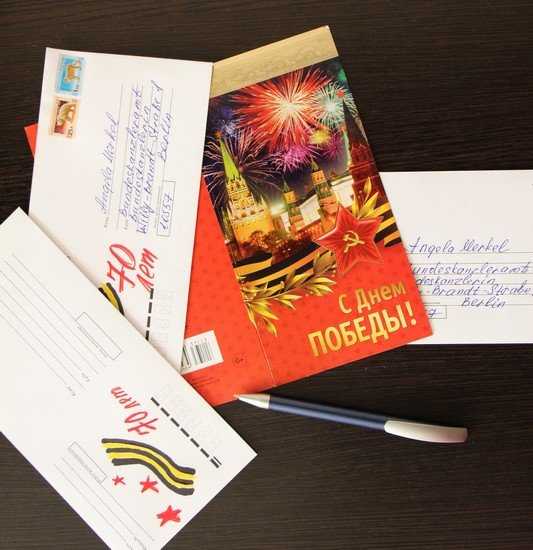 Angela Merkel
Bundeskanzleramt
Bundeskanzlerin
Willy-Brandt-Straße 1
Berlin
10557
70
лет
С Днем
ПОБЕДЫ!
Angela Merkel
undeskanzleramt
deskanzlerin
-Brandt-Straße
Berlin
57
70 лет